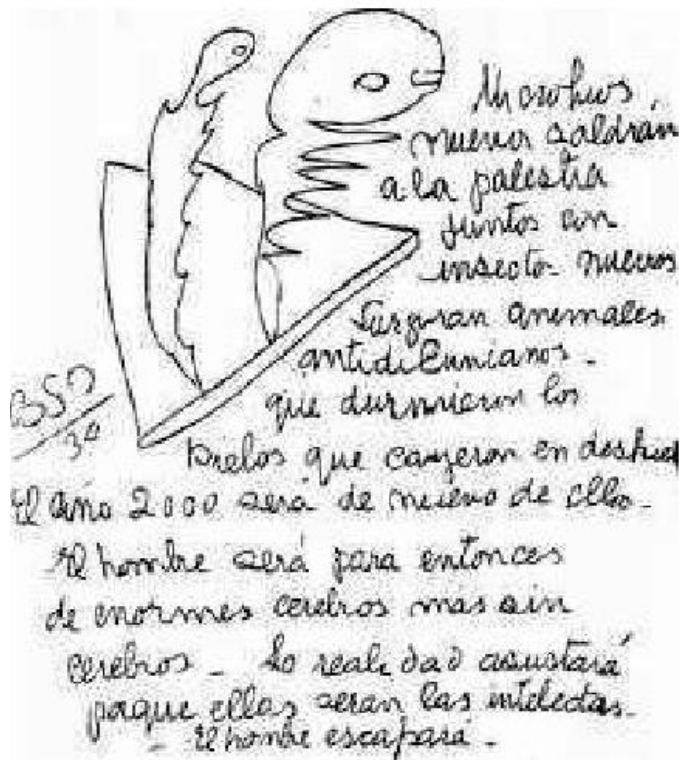 nuevos saldran
a la palestra
juntos con
insectos nuevos
Surgiran animales
antidiluvianos -
que durmieron los
hielos que cayeron en deshielo
BSP
3ª
El año 2000 será de nuevo de ellos -
El hombre será para entonces
de enormes cerebros mas sin
cerebros - La realidad asustará
porque ellas seran las intelectas -
- El hombre escapará -